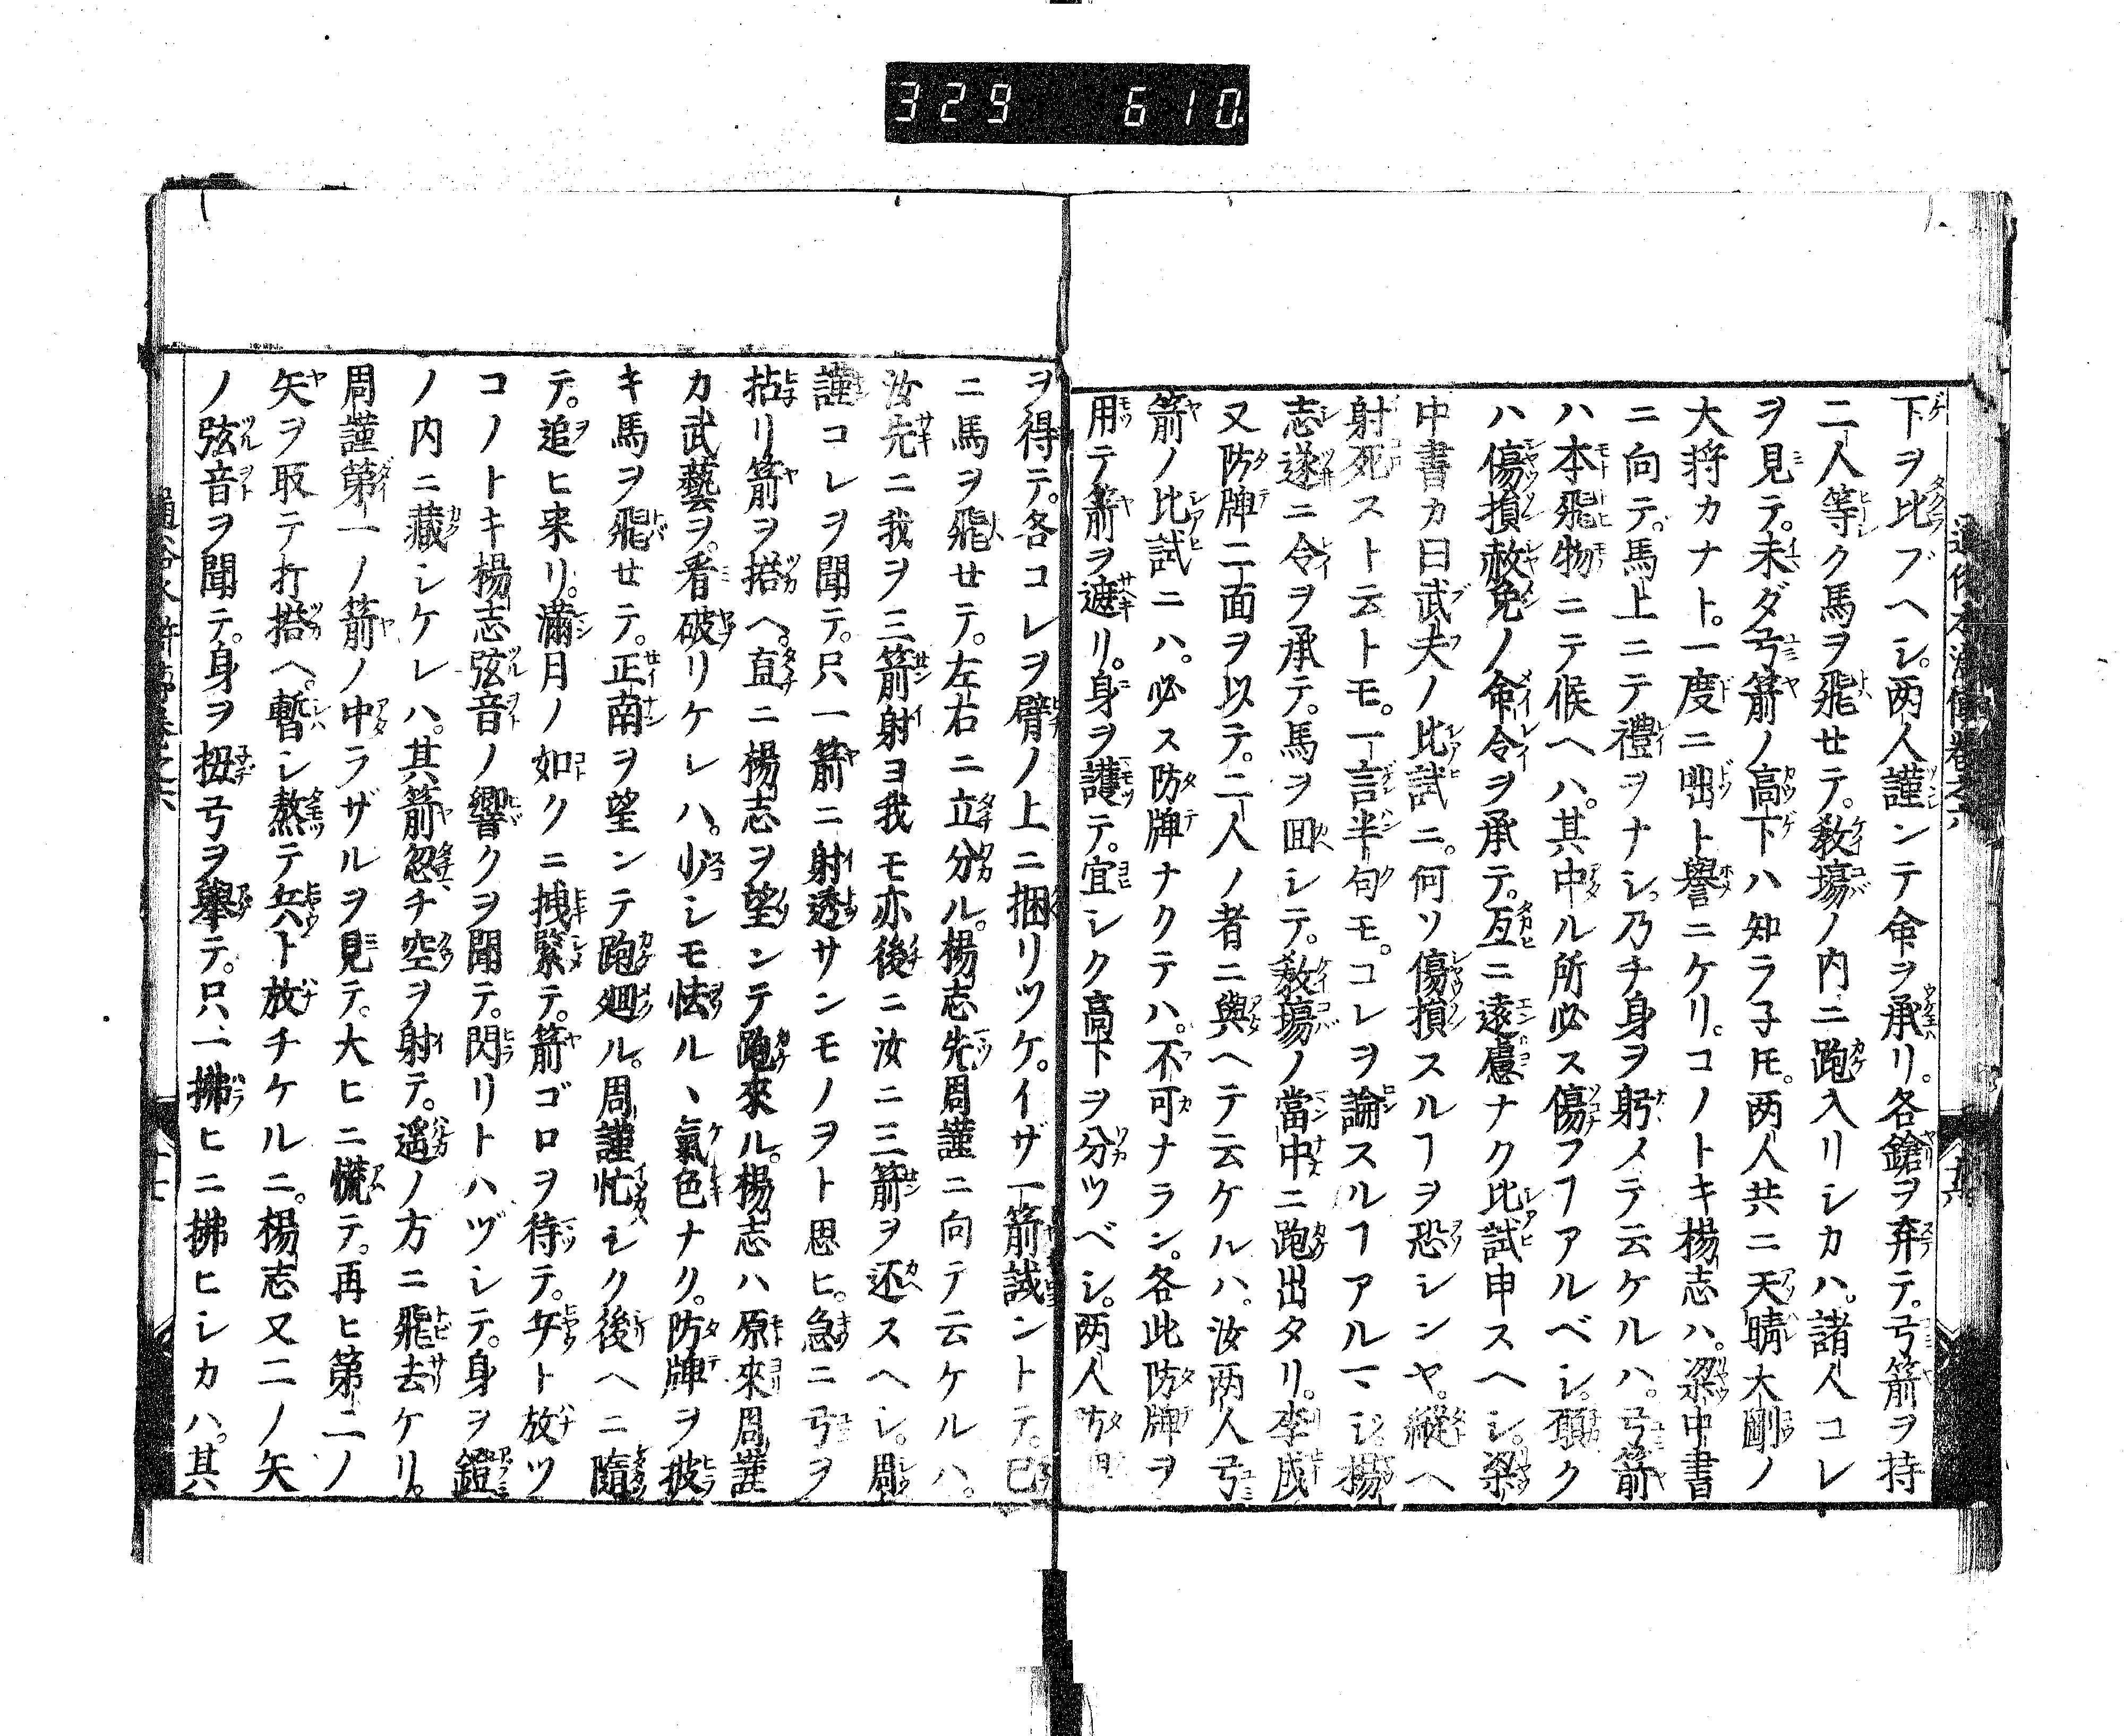 329 610.
下ヲ比ブヘシ。両人謹ンテ命ヲ承リ。各鎗ヲ弃テ。弓箭ヲ持
二人等ク馬ヲ飛せテ。教塲ノ内ニ跑入リシカハ。諸人コレ
ヲ見テ。未ダ弓箭ノ高下ハ知ラ子𪜈。両人共ニ天晴大剛ノ
大将カナト。一度ニ咄ト譽ニケリ。コノトキ楊志ハ。梁中書
ニ向テ。馬上ニテ禮ヲナシ。乃チ身ヲ躬メテ云ケルハ。弓箭
ハ本飛物ニテ候ヘハ。其中ル所必ス傷フヿアルベシ。頭ク
ハ傷損赦免ノ命令ヲ承テ。互ニ遠慮ナク比試申スヘシ。梁
中書カ曰武夫ノ比試ニ。何ソ傷損スルヿヲ恐シンヤ。縦ヘ
射死スト云トモ。一言半句モ。コレヲ論スルヿアルマシ。楊
志遂ニ令ヲ承テ。馬ヲ囬シテ。教塲ノ當中ニ跑出タリ。李成
又防牌二面ヲ以テ。二人ノ者ニ與ヘテ云ケルハ。汝両人弓
箭ノ比試ニハ。必ス防牌ナクテハ。不可ナラン。各此防牌ヲ
用テ箭ヲ遮リ。身ヲ護テ。宜シク高下ヲ分ツベシ。両人防
ヲ得テ。各コレヲ臂ノ上ニ捆リツケ。イザ一箭試ントテ。已
ニ馬ヲ飛せテ。左右ニ立分ル。楊志先周謹ニ向テ云ケルハ。
汝先ニ我ヲ三箭射ヨ我モ亦後ニ汝ニ三箭ヲ还スヘシ。周
謹コレヲ聞テ。只一箭ニ射透サンモノヲト思ヒ。急ニ弓ヲ
拈リ箭ヲ搭ヘ。直ニ楊志ヲ望ンテ跑來ル。楊志ハ原來周謹
カ武藝ヲ。看破リケレハ。少シモ怯ルヽ氣色ナク。防牌ヲ披
キ馬ヲ飛せテ。正南ヲ望ンテ跑廻ル。周謹忙シク後ヘニ隨
テ。追ヒ来リ。滿月ノ如クニ拽緊テ。箭ゴロヲ待テ。兵ト放ツ
コノトキ楊志弦音ノ響クヲ聞テ。閃リトハヅシテ。身ヲ鐙
ノ内ニ藏シケレハ。其箭忽チ空ヲ射テ。遙ノ方ニ飛去ケリ。
周謹第一ノ箭ノ中ラザルヲ見テ。大ヒニ慌テ。再ヒ第二ノ
矢ヲ取テ打搭ヘ。暫シ熬テ兵ト放チケルニ。楊志又二ノ矢
ノ弦音ヲ聞テ。身ヲ扭弓ヲ擧テ。只一拂ヒニ拂ヒシカハ。其